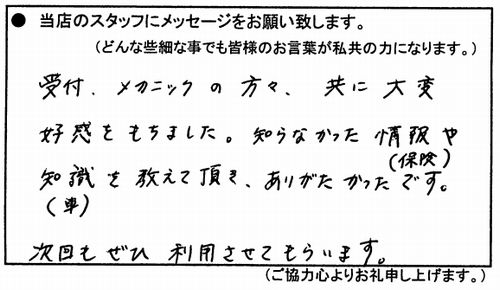 ● 当店のスタッフにメッセージをお願い致します。
(どんな些細な事でも皆様のお言葉が私共の力になります。)
受付、メカニックの方々、共に大変
好感をもちました。知らなかった情報や
(保険)
知識を教えて頂き、ありがたかったです。
(車)
次回もぜひ利用させてもらいます。
(ご協力心よりお礼申し上げます。)